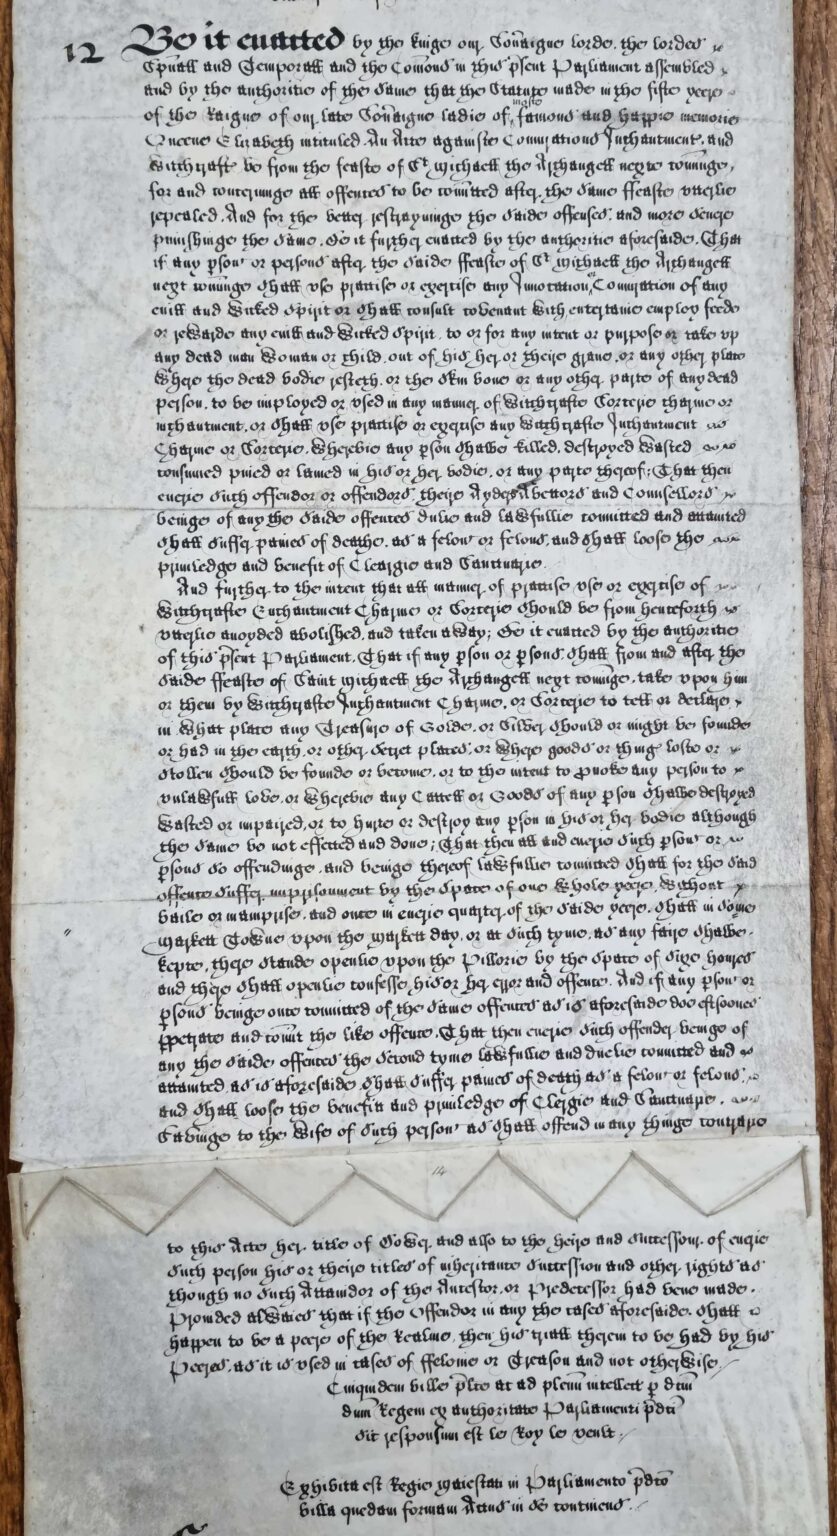 12 Be it enacted by the kinge our Sov̄aigne lorde, the lordes
Sp̄uall and Temporall and the Com̄ons in this p̄sent Parliament assembled
and by the authoritie of the same that the Statute made in the fifte yeere
of the Raigne of our late Sov̄aigne ladie of moste famous and happie memorie
Queene Elizabeth intituled An Acte againste Coniurations Inchantments, and
Witchcrafts be from the feaste of St Michaell the Archangell nexte com̄inge,
for and concerninge all offences to be com̄itted after the same ffeaste vtterlie
repealed. And for the better restrayninge the saide offenses, and more severe
punishinge the same, Be it further enacted by the authoritie aforesaide, That
if any p̄son or persons after the saide ffeaste of St Michaell the Archangell
next com̄inge shall vse practise or exercise any Invocation or Coniuration of any
evill and wicked Spirit or shall consult covenant with entertaine employ feede
or rewarde any evill and wicked Spirit, to or for any intent or purpose or take vp
any dead man woman or child, out of his her or theire grave, or any other place
where the dead bodie resteth, or the skin bone or any other parte of any dead
person, to be imployed or vsed in any manner of Witchcrafte Sorcerie charme or
inchantment, or shall vse practise or exercise any Witchcrafte Inchantment
Charme or Sorcerie, wherebie any p̄son shalbe killed, destroyed wasted
consumed pined or lamed in his or her bodie, or any parte thereof; That then
everie such offendor or offendors theire Ayders Abettors and Counsellors
beinge of any the saide offences dulie and lawfullie convicted and attainted
shall suffer paines of deathe as a felon or felons, and shall loose the
priviledge and benefit of Cleargie and Sanctuarie.
And further to the intent that all manner of practise vse or exercise of
Witchcrafte Enchantment Charme or Sorcerie should be from henceforth
vtterlie avoyded abolished, and taken away; Be it enacted by the authoritie
of this p̄sent Parliament, That if any p̄son or p̄sons shall from and after the
saide ffeaste of Saint Michaell the Archangell next com̄inge, take vpon him
or them by Witchcrafte Inchantment Charme, or Sorcerie to tell or declare
in what place any Treasure of Golde, or Silver should or might be founde
or had in the earth, or other secret places, or where goods or things loste or
stollen should be founde or become, or to the intent to p̄voke any person to
vnlawfull love, or wherebie any Cattell or Goods of any p̄son shalbe destroyed
wasted or impaired, or to hurte or destroy any p̄son in his or her bodie although
the same be not effected and done; That then all and everie such p̄son or
p̄sons so offendinge, and beinge thereof lawfullie convicted shall for the said
offence suffer imprisonment by the space of one whole yeere, without
baile or mainprise, and once in everie quarter of the saide yeere, shall in some
Markett Towne vpon the Markett day, or at such tyme, as any faire shalbe
kepte, there stande openlie vpon the Pillorie by the space of sixe houres
and there shall openlie confesse, his or her error and offence. And if any p̄son or
p̄sons beinge once convicted of the same offences as is aforesaide doe eftsoones
p̄petrate and com̄it the like offence, That then everie such offender beinge of
any the saide offences the second tyme lawfullie and duelie convicted and
attainted as is aforesaide, shall suffer paines of death as a felon or felons,
and shall loose the benefitt and priviledge of Clergie and Sanctuarie.
Savinge to the wife of such person as shall offend in any thinge contrarie
14
to this Acte her title of Dower and also to the heire and successour of everie
such person his or theire titles of inheritance succession and other rights as
though no such Attaindor of the Ancestor, or Predecessor had bene made.
Provided alwaies that if the Offendor in any the cases aforesaide, shall
happen to be a peere of the Realme, then his triall therein to be had by his
Peeres, as it is vsed in cases of ffelonie or Treason and not otherwise.
Cuiquidem bille p̄lte at ad plenū intellecte p̄ dictū
dum̄ Regem ex authoritate Parliamenti p̄dti
sit responsum est le Roy le veult.
Exhibita est Regie maiestati in Parliamento p̄dto
billa quedam formam Actus in se continens.